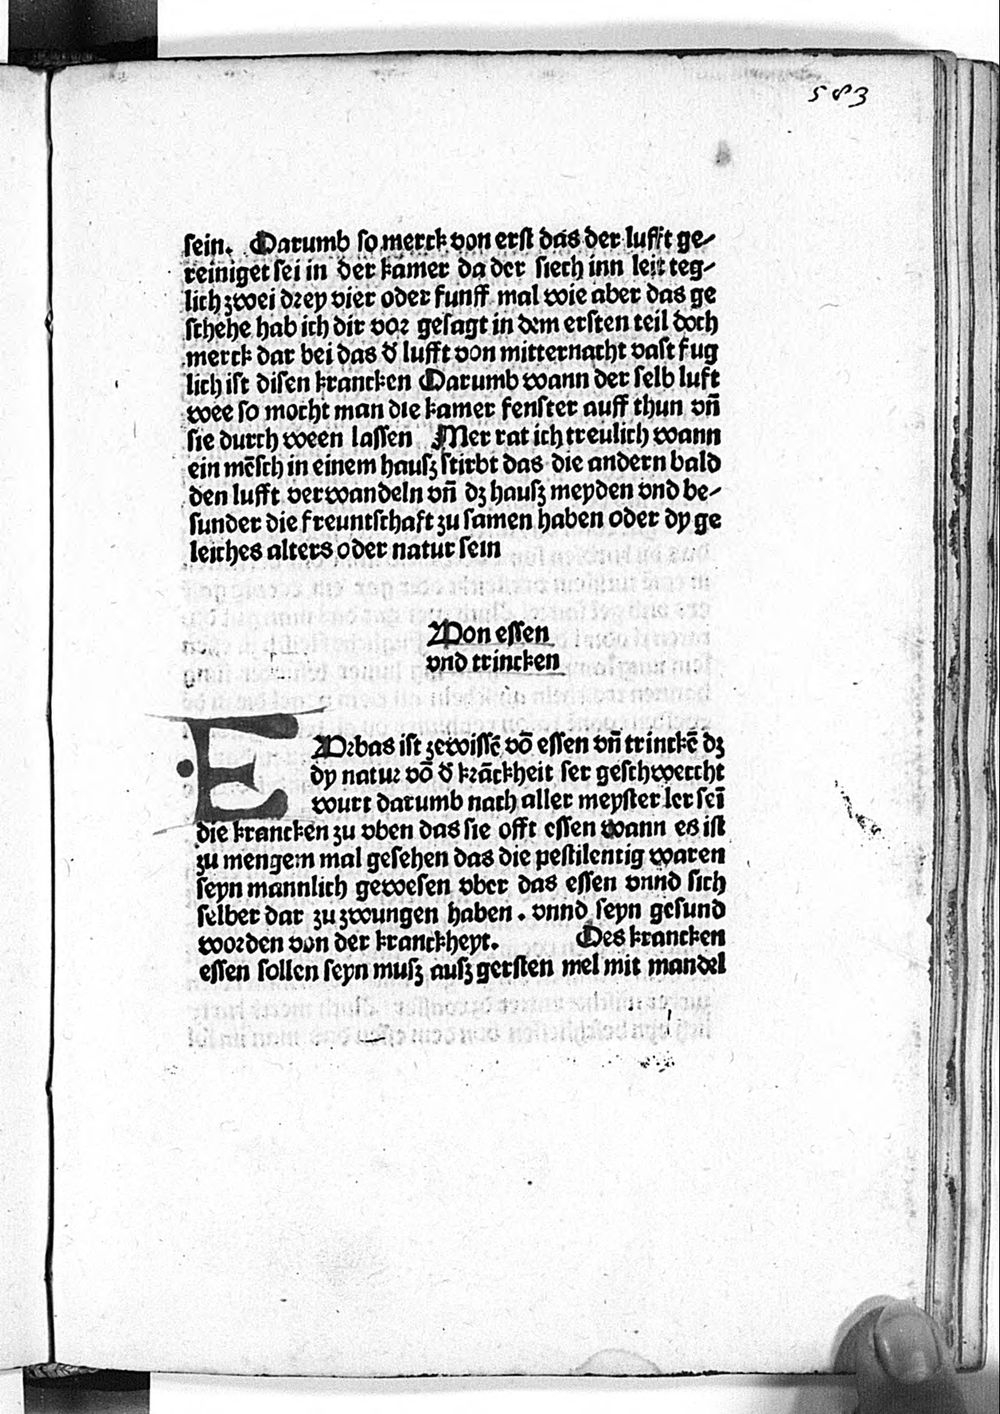 583
sein. Darumb so merck von erst das der lufft ge⸗
reiniget sei in der kamer da der siech inn leit teg⸗
lich zwei drey vier oder funff mal wie aber das ge
schehe hab ich dir vor gesagt in dem ersten teil doch
merck dar bei das d̛ lufft von mitternacht vast fug
lich ist disen krancken Darumb wann der selb luft
wee so mocht man die kamer fenster auff thun vn̄
sie durch ween lassen Mer rat ich treulich wann
ein mēsch in einem hausz stirbt das die andern bald
den lufft verwandeln vn̄ dz hausz meyden vnd be⸗
sunder die freuntschaft zu samen haben oder dy ge
leiches alters oder natur sein
Von essen
vnd trincken
E Vrbas ist zewissē vō essen vn̄ trinckē dz
dy natur vō d̛ krāckheit ser geschwecht
wurt darumb nach aller meyster ler seī
die krancken zu vben das sie offt essen wann es ist
zu mengem mal gesehen das die pestilentig waren
seyn mannlich gewesen vber das essen vnnd sich
selber dar zu zwungen haben. vnnd seyn gesund
worden von der kranckheyt. Des krancken
essen sollen seyn musz ausz gersten mel mit mandel